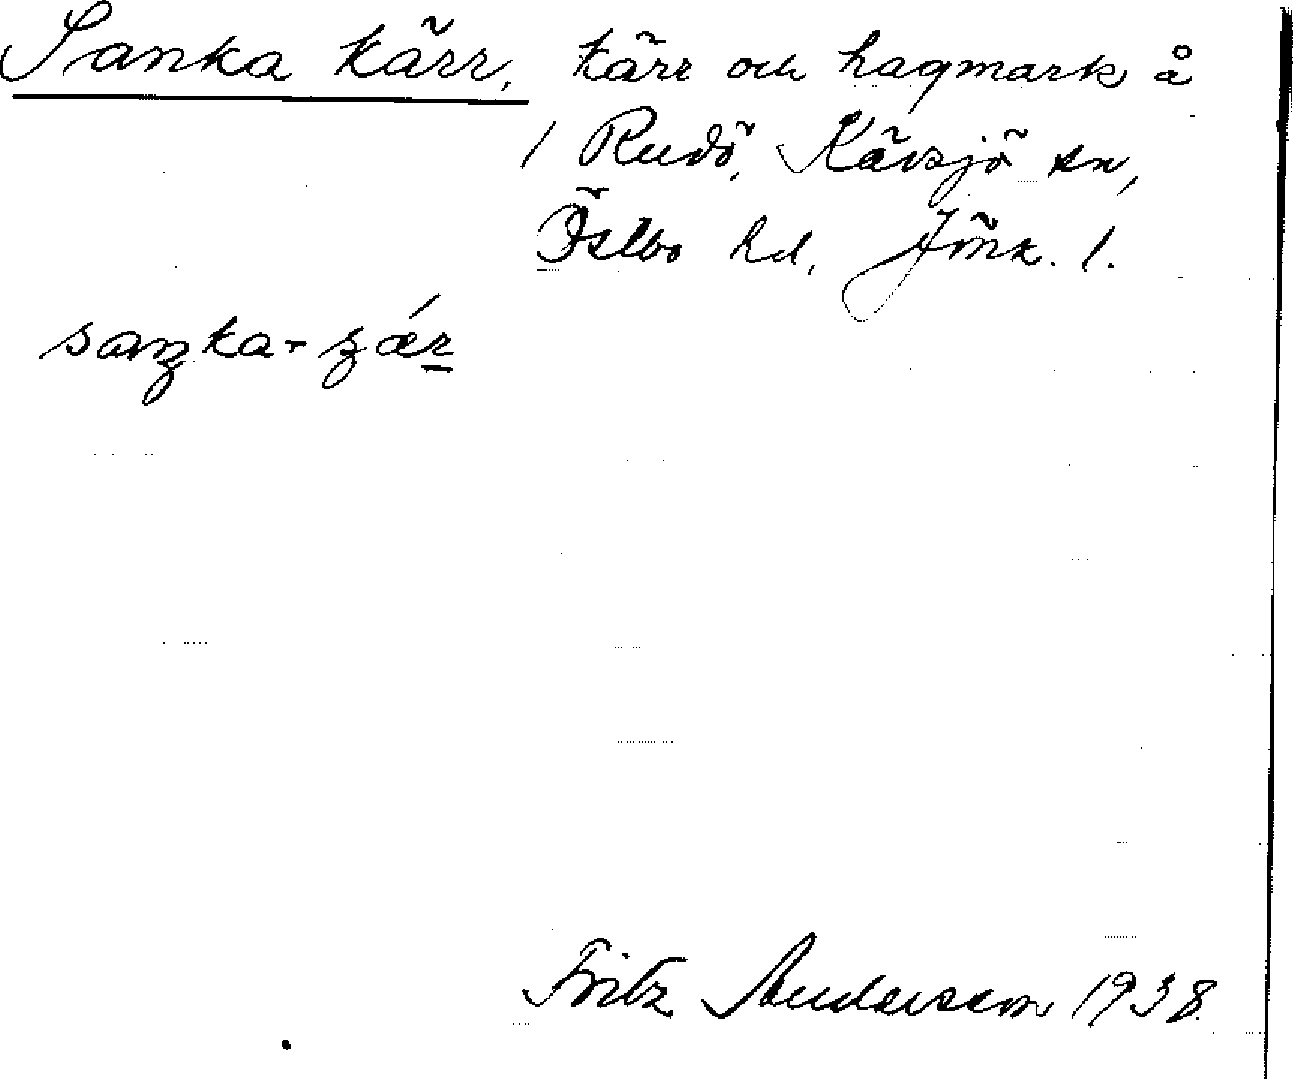 Sanka kärr, kärr och hagmark å
1 Rudö, Kävsjö sn,
Östbo hd, Jönk. l.
Fritz Andersson 1938